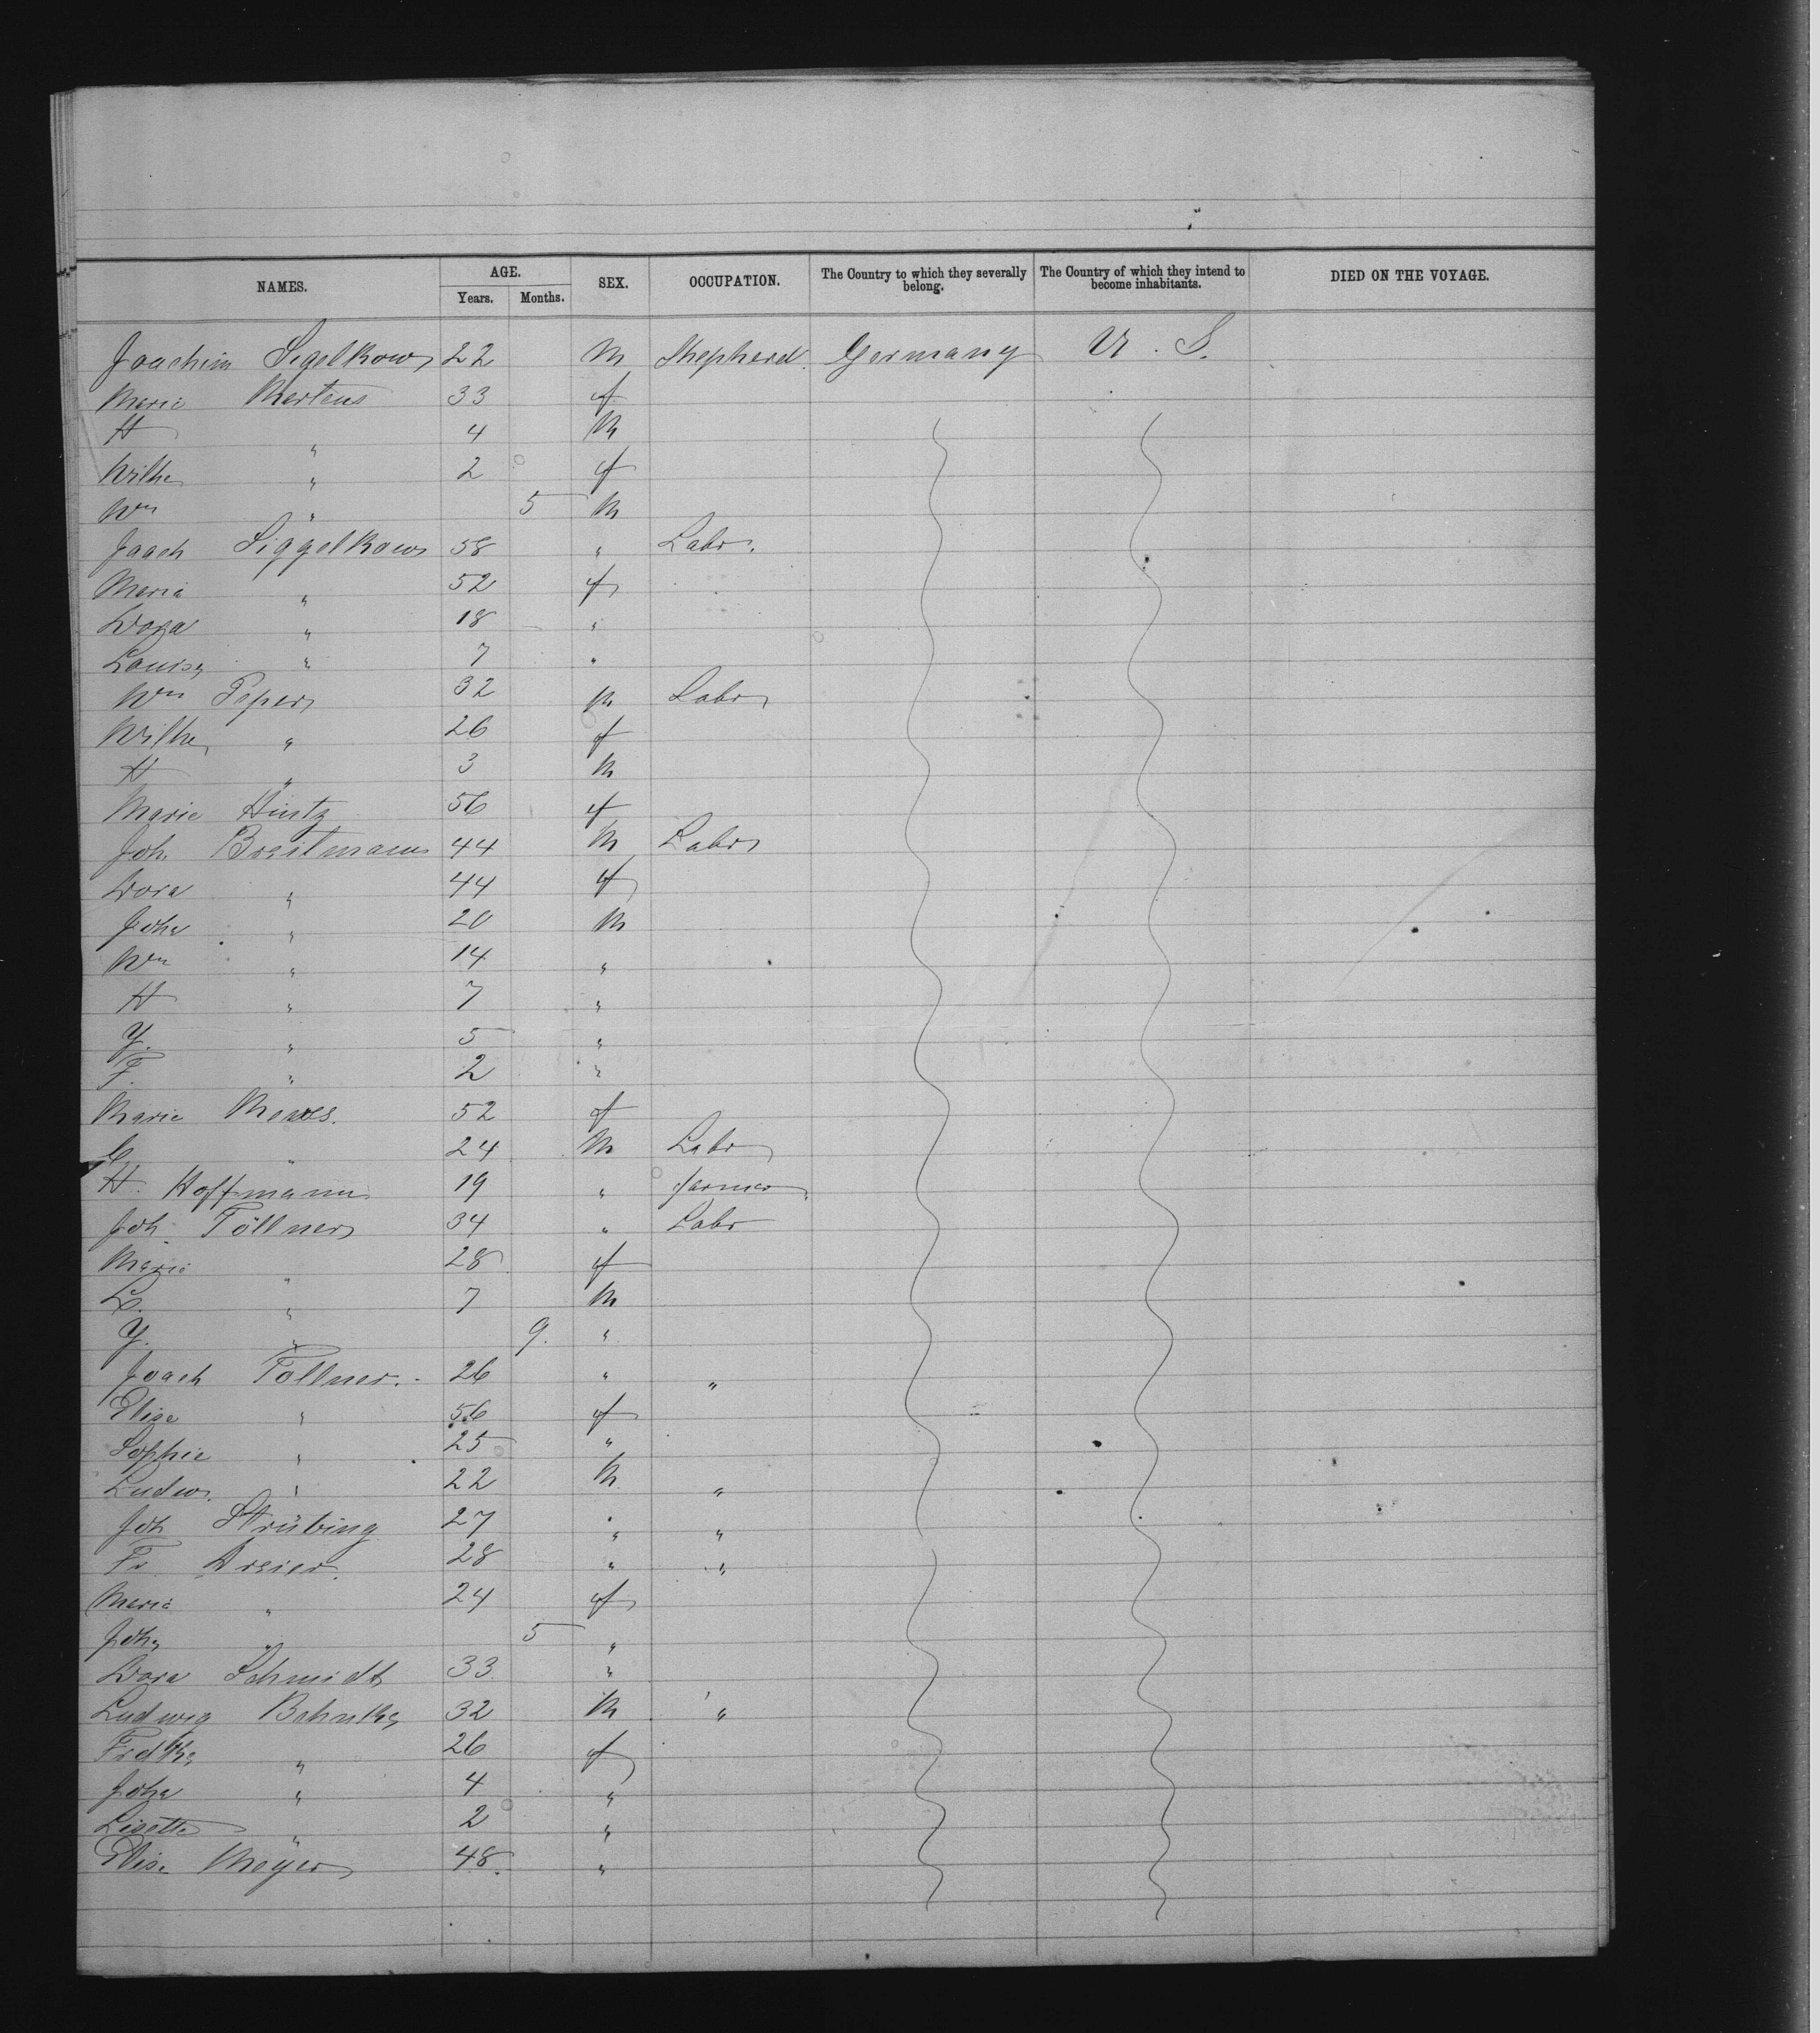 NAMES. AGE. SEX. OCCUPATION. The Country to which they severally belong. The Country of which they intend to become inhabitants. DIED ON THE VOYAGE.
Years. Months.
Joachim Sigelkow 22 M Shepherd. Germany U. S.
Marie Mertens 33 f
H " 4 M
Wilhe " 2 f
Wm " 5 M
Joach Siggelkow 58 " Labr.
Maria " 52 f
Dora " 18 "
Louise " 7 "
Wm Peper 32 M Labr
Wilhe " 26 f
H " 3 M
Marie Hintz 56 f
Joh. Breitmann 44 M Labr
Dora " 44 f
Johe " 20 M
Wm " 14 "
H " 7 "
J. " 5 "
F. " 2 "
Marie Mewes. 52 f
C " 24 M Labr
H. Hoffmann 19 " farmer
Joh. Töllner 34 " Labr
Marie " 28 f
L. " 7 M
J. " 9. "
Joach Tollner. 26 " "
Elise " 56 f
Sophie " 25 "
Ludw. " 22 M "
Joh Strübing 27 " "
Fr. Dreier. 28 " "
Maria " 24 f
Joh " 5 "
Dora Schmidt 33 "
Ludwig Behnke 32 M "
Frdke " 26 f
Johe " 4 "
Lisette " 2 "
Elise Meyer 48. "